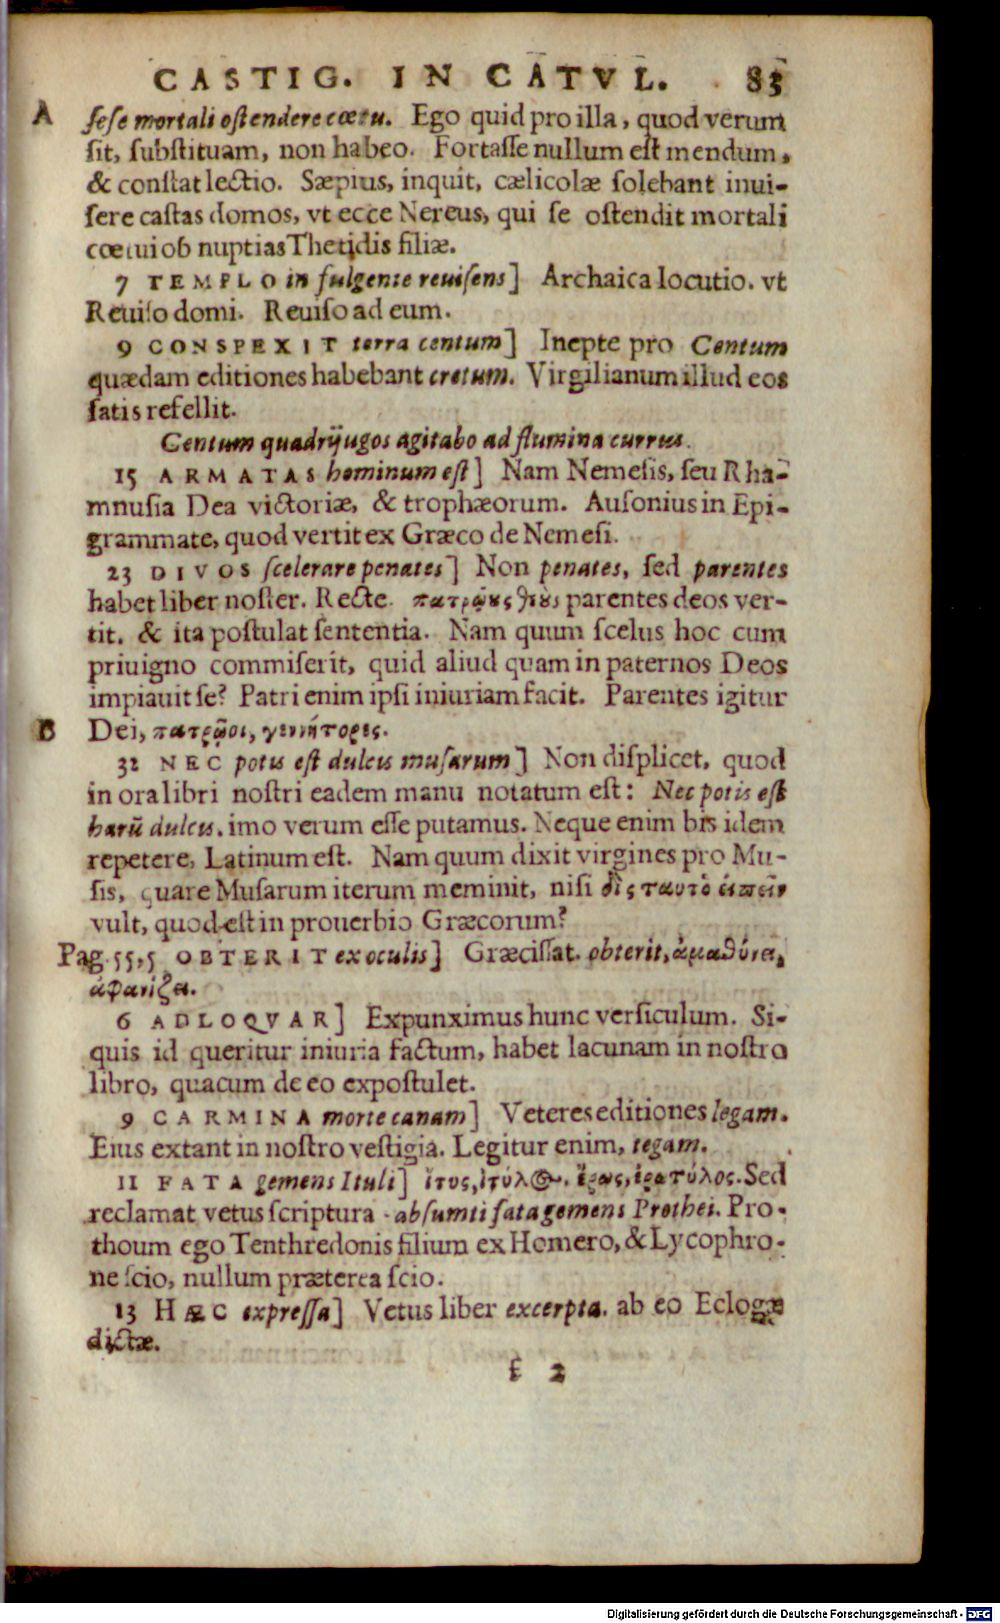 CASTIG. IN CATVL. 83
A ſeſe mortali oſtendere cœtu. Ego quid pro illa, quod verum
ſit, ſubſtituam, non habeo. Fortaſſe nullum eſt mendum,
& conſtat lectio. Sæpius, inquit, cælicolæ ſolebant inui-
ſere caſtas domos, vt ecce Nereus, qui ſe oſtendit mortali
cœtui ob nuptias Thetidis filiæ.
7 TEMPLO in fulgente reuiſens] Archaica locutio. vt
Reuiſo domi. Reuiſo ad eum.
9 CONSPEXIT terra centum] Inepte pro Centum
quædam editiones habebant cretum. Virgilianum illud eos
ſatis refellit.
Centum quadrijugos agitabo ad flumina currus.
15 ARMATAS hominum eſt] Nam Nemeſis, ſeu Rha-
mnuſia Dea victoriæ, & trophæorum. Auſonius in Epi-
grammate, quod vertit ex Græco de Nemeſi.
23 DIVOS ſcelerare penates] Non penates, ſed parentes
habet liber noſter. Recte. πατρῴους θεοὺς parentes deos ver-
tit. & ita poſtulat ſententia. Nam quum ſcelus hoc cum
priuigno commiſerit, quid aliud quam in paternos Deos
impiauit ſe? Patri enim ipſi iniuriam facit. Parentes igitur
B Dei, πατρῷοι, γεννήτορες.
32 NEC potis eſt dulcis muſarum] Non diſplicet, quod
in ora libri noſtri eadem manu notatum eſt: Nec potis eſt
harū dulcis. imo verum eſſe putamus. Neque enim bis idem
repetere, Latinum eſt. Nam quum dixit virgines pro Mu-
ſis, quare Muſarum iterum meminit, niſi δὶς ταυτὸ εἰπεῖν
vult, quod eſt in prouerbio Græcorum?
Pag. 55, 5 OBTERIT ex oculis] Græciſſat. obterit, ἀμαθύνει,
ἀφανίζει.
6 ADLOQVAR] Expunximus hunc verſiculum. Si-
quis id queritur iniuria factum, habet lacunam in noſtro
libro, quacum de eo expoſtulet.
9 CARMINA morte canam] Veteres editiones legam.
Eius extant in noſtro veſtigia. Legitur enim, tegam.
11 FATA gemens Ituli] ἴτυς, ἰτύλος. ἔρως, ἐρωτύλος. Sed
reclamat vetus ſcriptura. abſumti fata gemens Prothei. Pro-
thoum ego Tenthredonis filium ex Homero, & Lycophro-
ne ſcio, nullum præterea ſcio.
13 HÆC expreſſa] Vetus liber excerpta. ab eo Eclogæ
dictæ.
f 2
Digitalisierung gefördert durch die Deutsche Forschungsgemeinschaft - DFG